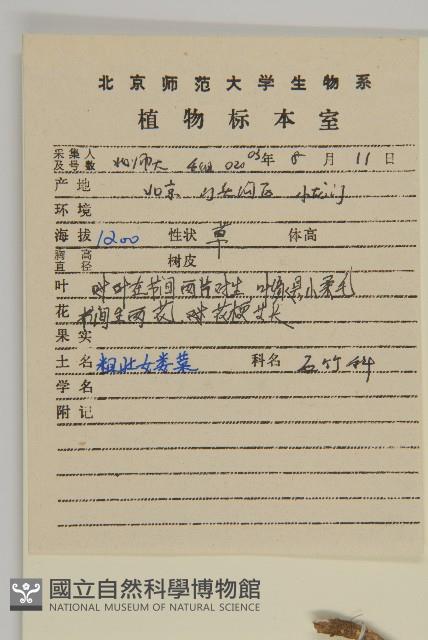 北京师范大学生物系
植物标本室
采集人及号数 北师大 020 05年 8月 11日
产地 北京 门头沟区 小龙门
环境
海拔 1200 性状 草 体高
胸高直径 树皮
叶 对叶在节目两片对生 叶缘具小柔毛
花 节间生两花
果实
土名 粗壮女娄菜 科名 石竹科
学名
附记
國立自然科學博物館
NATIONAL MUSEUM OF NATURAL SCIENCE